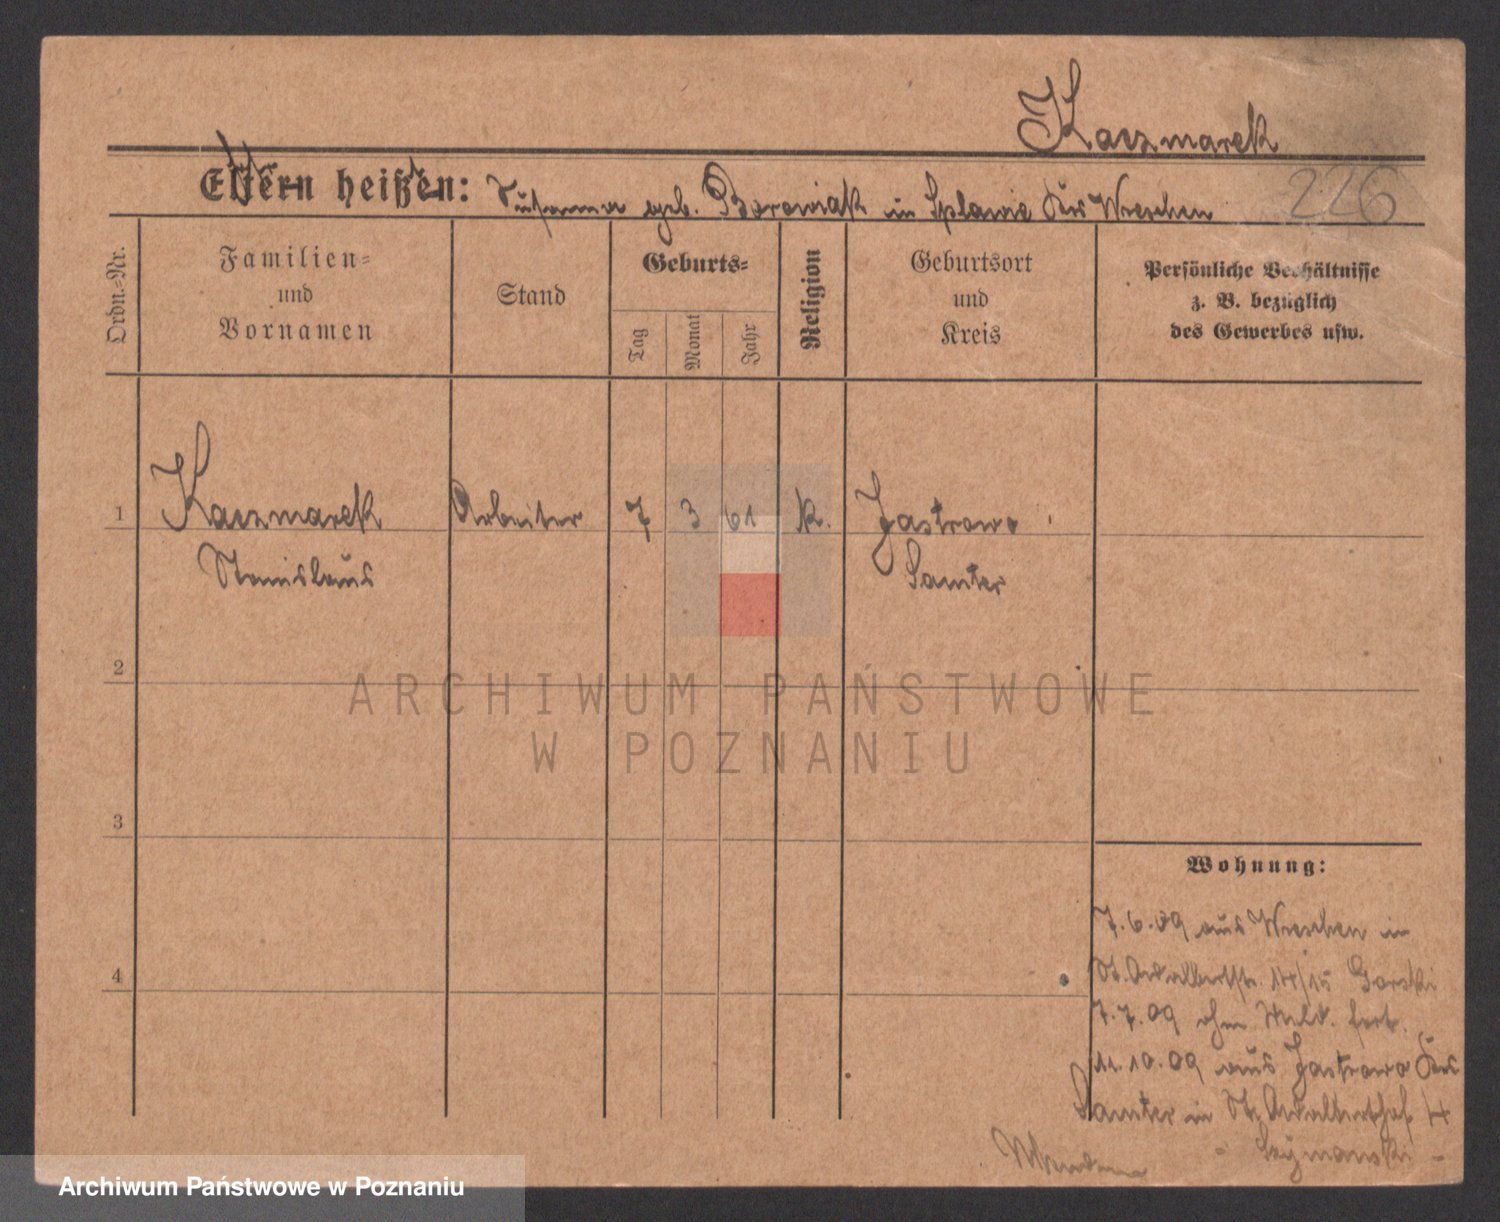 Kaczmarek
Eltern heißen: geb. Borowiak in Splawie Krs Wreschen
226
Ordn.-Nr.
Familien-
und
Vornamen
Stand
Geburts-
Tag
Monat
Jahr
Religion
Geburtsort
und
Kreis
Persönliche Verhältnisse
z. B. bezüglich
des Gewerbes usw.
1
Kaczmarek
Arbeiter
7
3
61
k.
Jastrowo
Stanislaus
Samter
2
ARCHIWUM PAŃSTWOWE
W POZNANIU
3
Wohnung:
7.6.09 aus Wreschen in
St. Adalbertstr. 14/15 Gorski
4
7.7.09 ohne Meld. fort.
11.10.09 aus Jastrowo Krs
Samter in St. Adalberthof 4
Archiwum Państwowe w Poznaniu